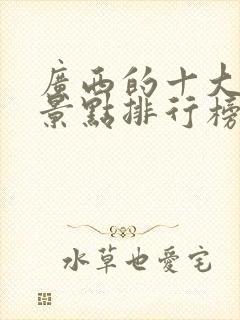 廣西的十大
景點排行榜
水草也愛宅